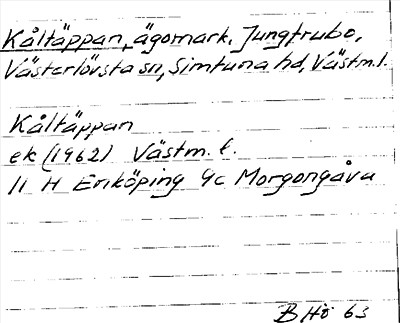 Kåltäppan, ägomark, Jungfrubo,
Västerlövsta sn, Simtuna hd, Västm.l.
Kåltäppan
ek (1962) Västm. l.
11 H Enköping 9c Morgongåva
BHö 63